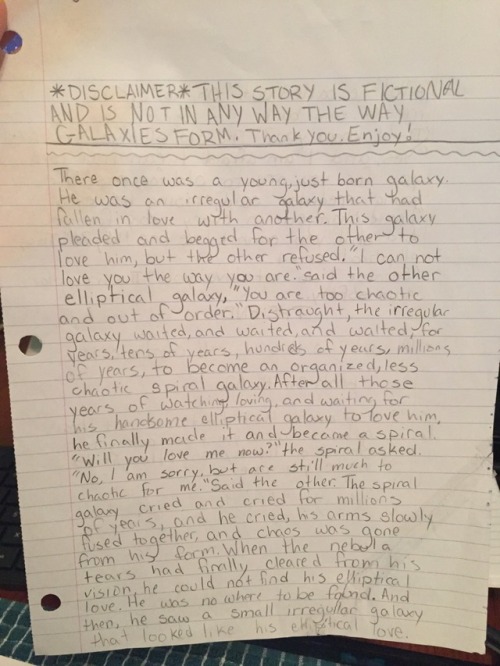 *DISCLAIMER* THIS STORY IS FICTIONAL
AND IS NOT IN ANY WAY THE WAY
GALAXIES FORM. Thank you. Enjoy!
There once was a young, just born galaxy.
He was an irregular galaxy that had
fallen in love with another. This galaxy
pleaded and begged for the other to
love him, but the other refused. "I can not
love you the way you are." said the other
elliptical galaxy, "You are too chaotic
and out of order." Distraught, the irregular
galaxy waited, and waited, and waited, for
years, tens of years, hundreds of years, millions
of years, to become an organized, less
chaotic spiral galaxy. After all those
years of watching, loving, and waiting for
his handsome elliptical galaxy to love him,
he finally made it and became a spiral.
"Will you love me now?" the spiral asked.
"No, I am sorry, but are still much to
chaotic for me." Said the other. The spiral
galaxy cried and cried for millions
of years, and he cried, his arms slowly
fused together, and chaos was gone
from his form. When the nebula
tears had finally cleared from his
vision, he could not find his elliptical
love. He was no where to be found. And
then, he saw a small irregular galaxy
that looked like his elliptical love.